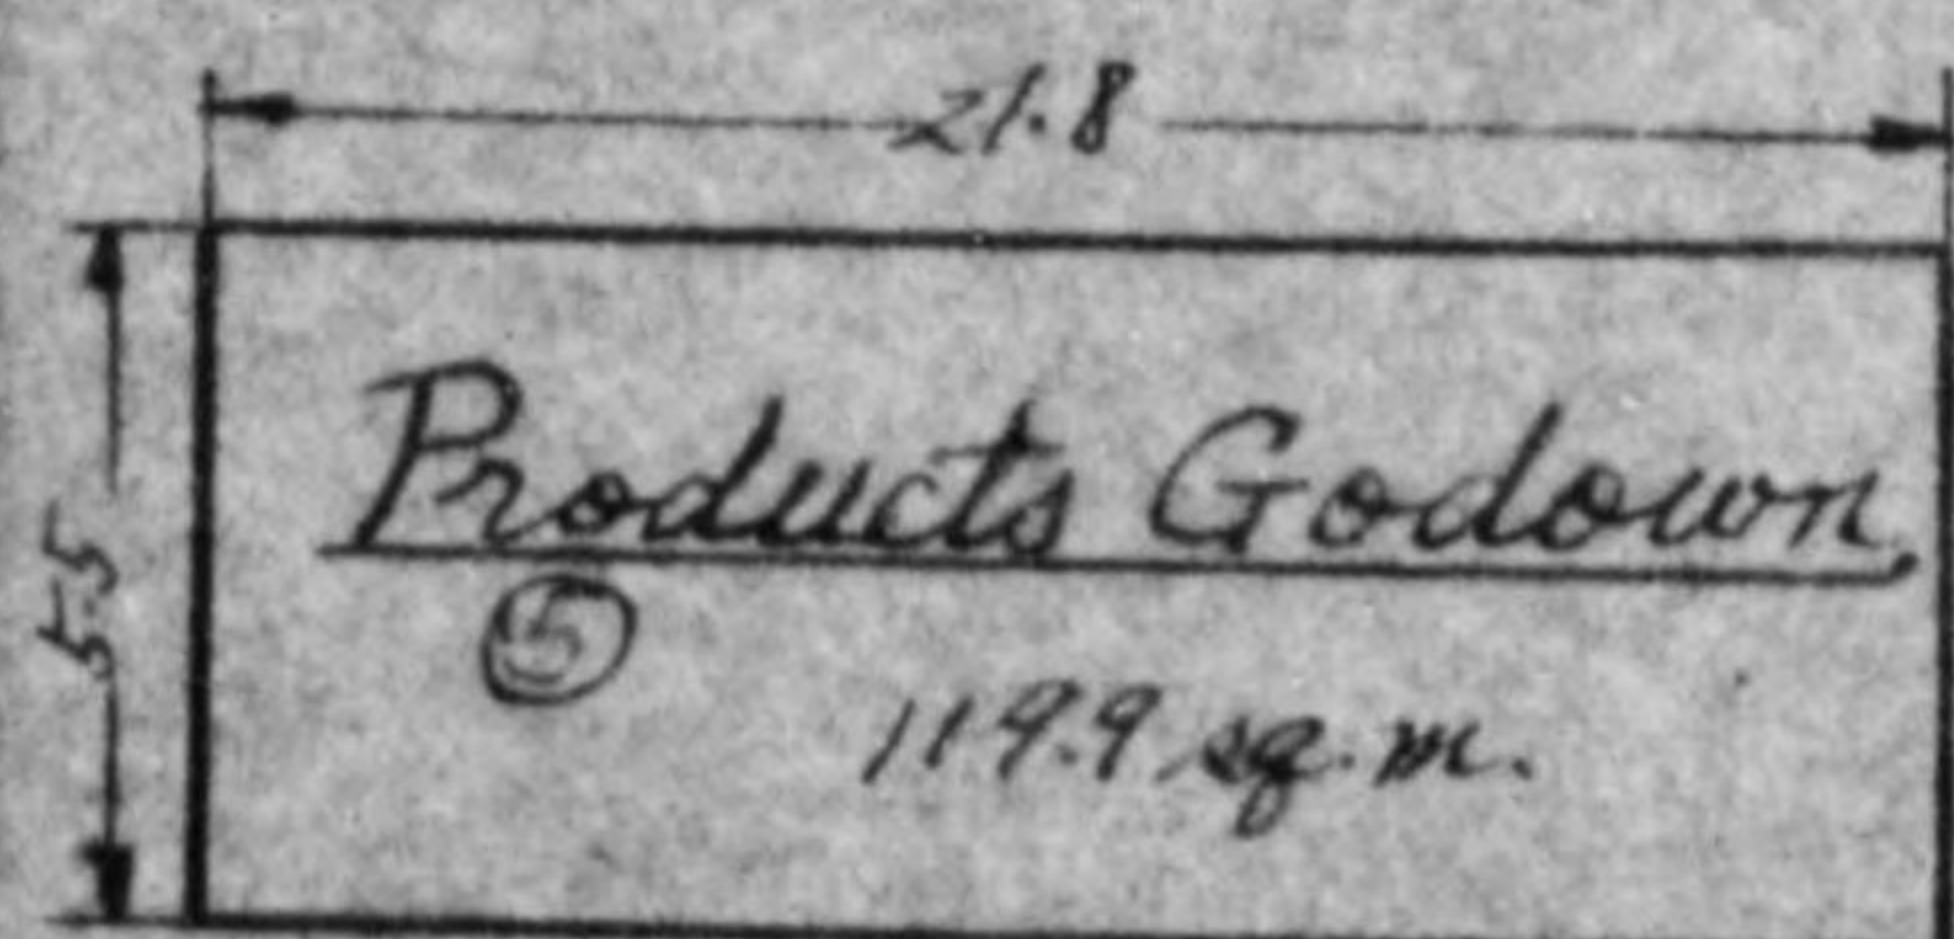 21.8
5.5
Products Godown.
⑤
119.9 sq.m.